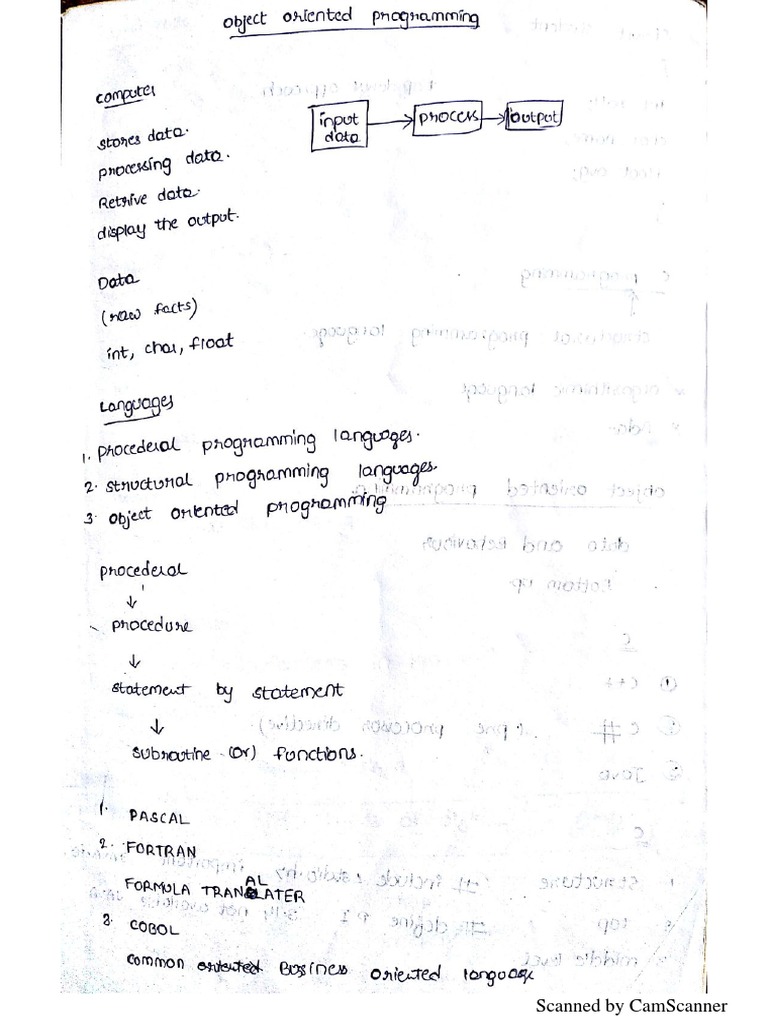 object oriented programming
computer
input data → process → output
stores data.
processing data.
Retrive data.
display the output.
Data
(raw facts)
int, char, float
Languages
1. procederal programming languages.
2. structural programming languages.
3. object oriented programming
procederal
↓
procedure
↓
statement by statement
↓
subroutine (or) functions.
1. PASCAL
2. FORTRAN
AL
FORMULA TRANLATER
3. COBOL
common oriented Business oriented language
Scanned by CamScanner